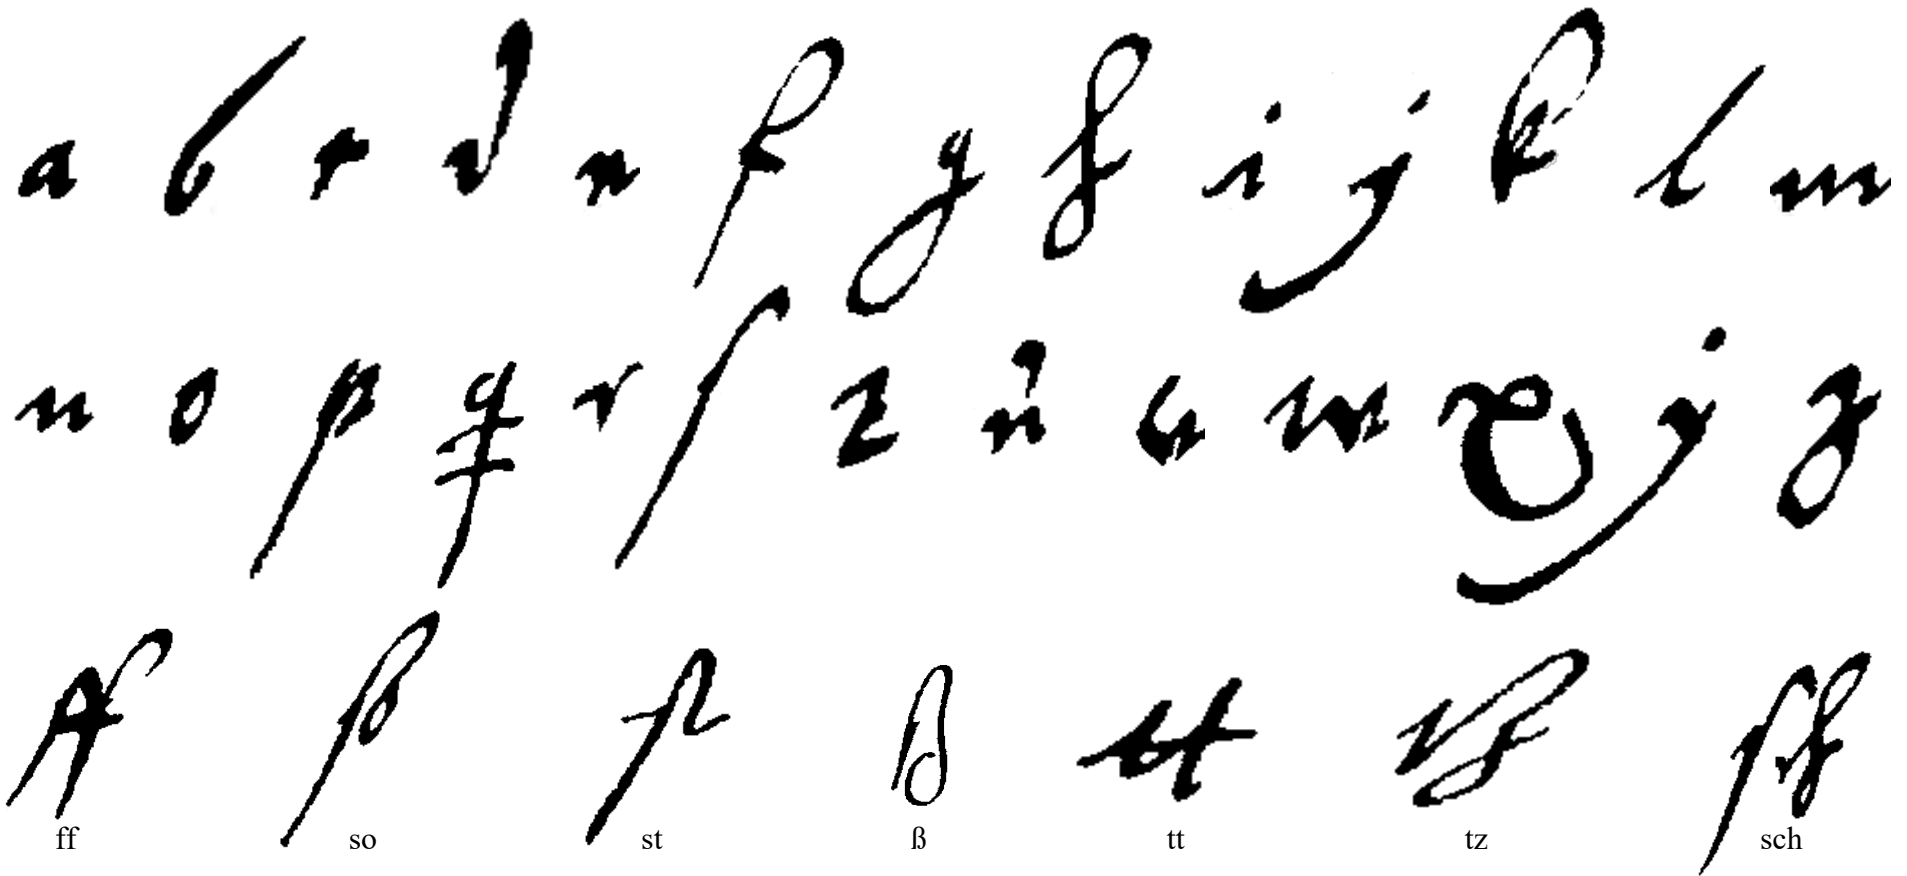 a b c d e f g h i j k l m
n o p q r ſ t u v w x y z
ff ſo ſt ß tt tz ſch
ff so st ß tt tz sch